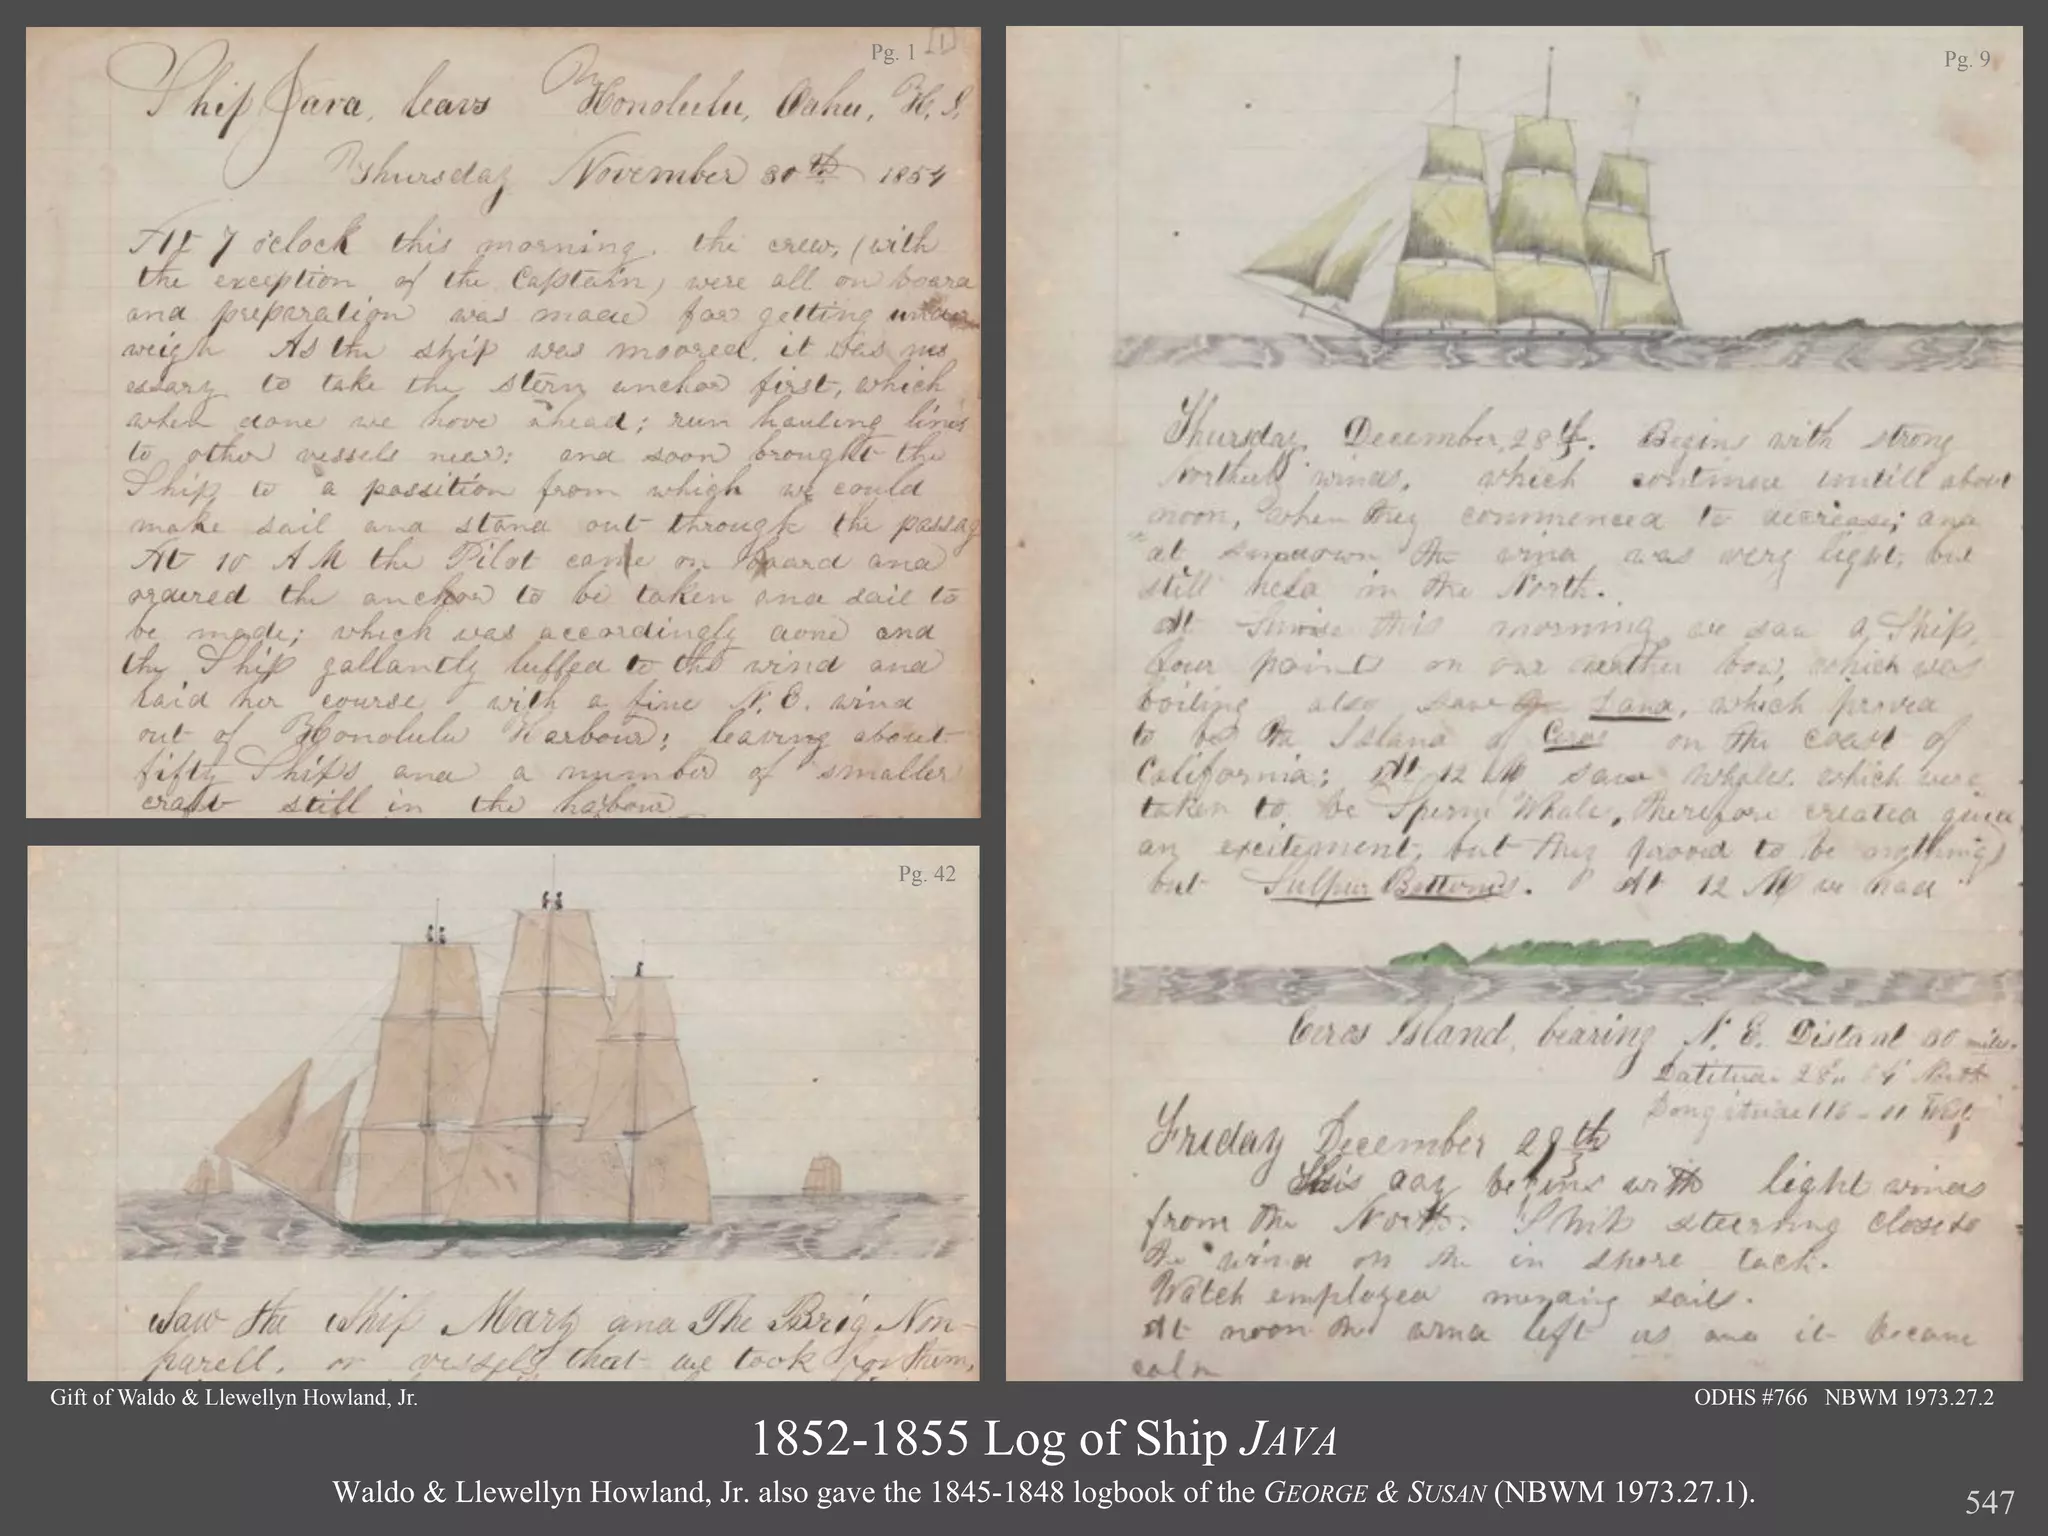 Pg. 1
[1]
Ship Java, leavs Honolulu, Oahu, H. I.
Thursday November 30th 1854
At 7 o'clock this morning. the crew, (with
the exception of the Captain) were all on board
and preparation was made for getting under
weigh As the ship was moored, it was nes
essary to take the stern anchor first, which
when done we hove ahead; run hauling lines
to other vessels near: and soon brought the
Ship to a possition from which we could
make sail and stand out through the passag
At 10 AM the Pilot came on board and
ordered the anchor to be taken and sail to
be made; which was accordingly done and
the Ship gallantly luffed to the wind and
laid her course with a fine N. E. wind
out of Honolulu Harbour; leaving about
fifty Ships and a number of smaller
craft still in the harbour
Pg. 42
Saw the Ship Mary and The Brig Non-
parell, or vessels that we took for them,
Pg. 9
Thursday December, 28th. Begins with strong
Northerly winds, which continue untill about
noon, when they commenced to decrease; and
at sundown the wind was very light, but
still held in the North.
At Sunrise this morning we saw a Ship,
four points on our weather bow, which was
boiling also saw Land, which proved
to be the Island of Ceros on the coast of
California; At 12 M saw whales. which were
taken to be Sperm Whale, therefore created quite
an excitement, but they proved to be nothing
but Sulpur Bottoms. At 12 M we had
Ceros Island, bearing N. E. Distant 30 miles.
Latitude 28 North
Longitude 116 - 11 West
Friday December 29th
This day begins with light winds
from the North. Ship steering close to
the wind on the in shore tack.
Watch employed mending sails.
At noon the wind left us and it became
calm
Gift of Waldo & Llewellyn Howland, Jr.
ODHS #766 NBWM 1973.27.2
1852-1855 Log of Ship JAVA
Waldo & Llewellyn Howland, Jr. also gave the 1845-1848 logbook of the GEORGE & SUSAN (NBWM 1973.27.1).
547